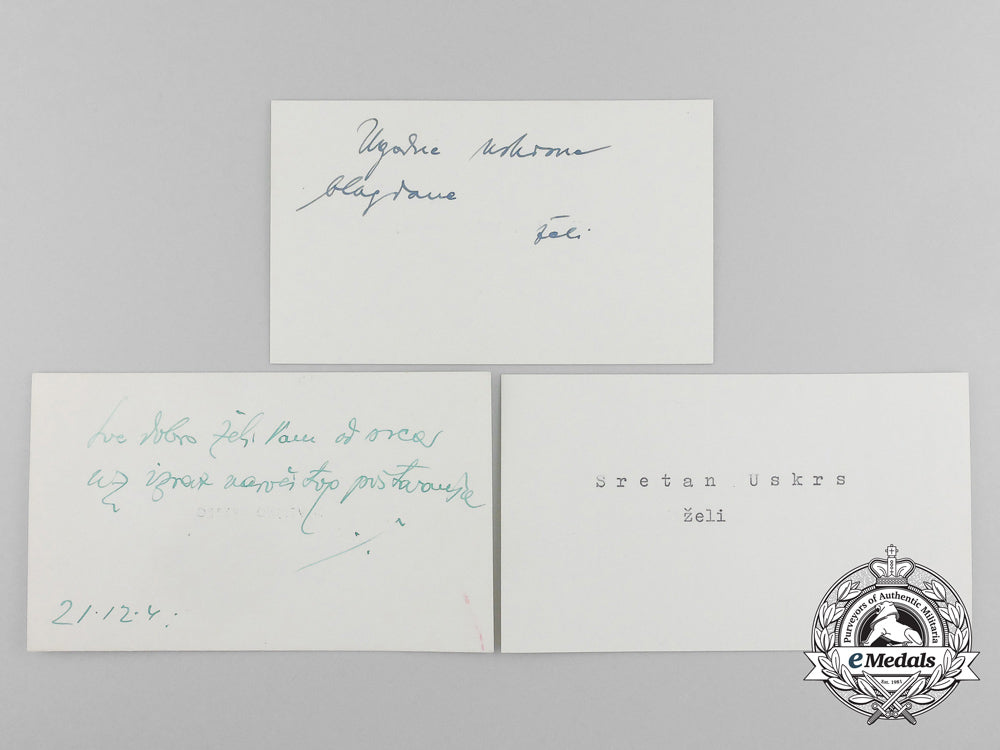 Ugodne uskrsne
blagdane
želi
Sve dobro želi Vam od srca
uz izraz naročitog poštovanja
21.12.4.
Sretan Uskrs
želi
Purveyors of Authentic Militaria
eMedals
Est. 1981